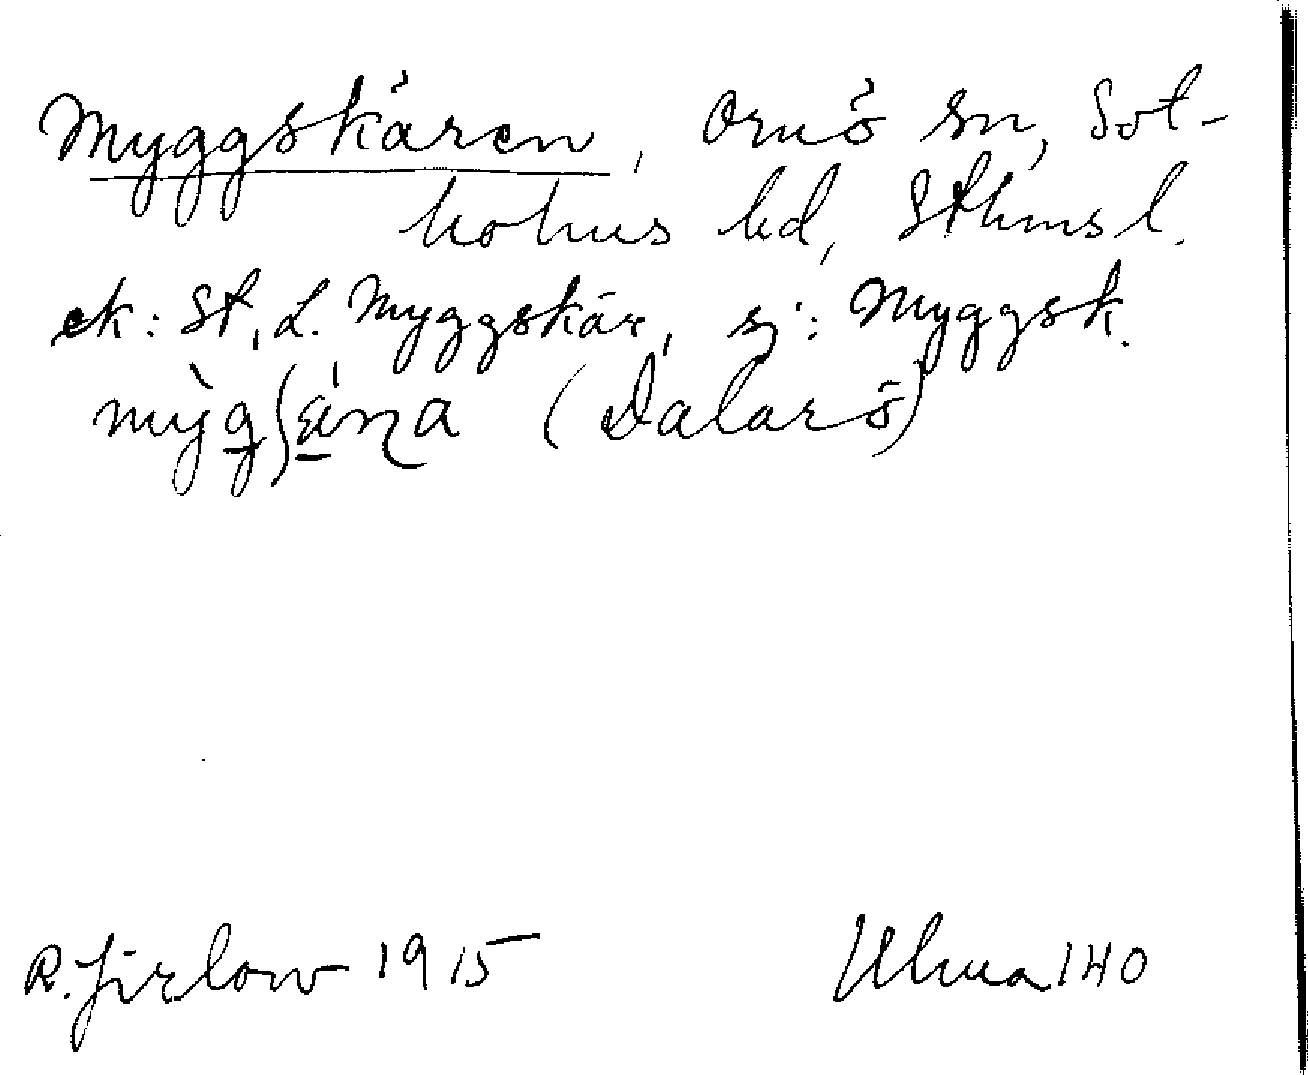 Myggskären, Ornö sn, Sot-
holms hd, Sthms l.
ek: St., L. Myggskär, sj: Myggsk.
(Dalarö)
R. Jirlow 1915 Ulma 140